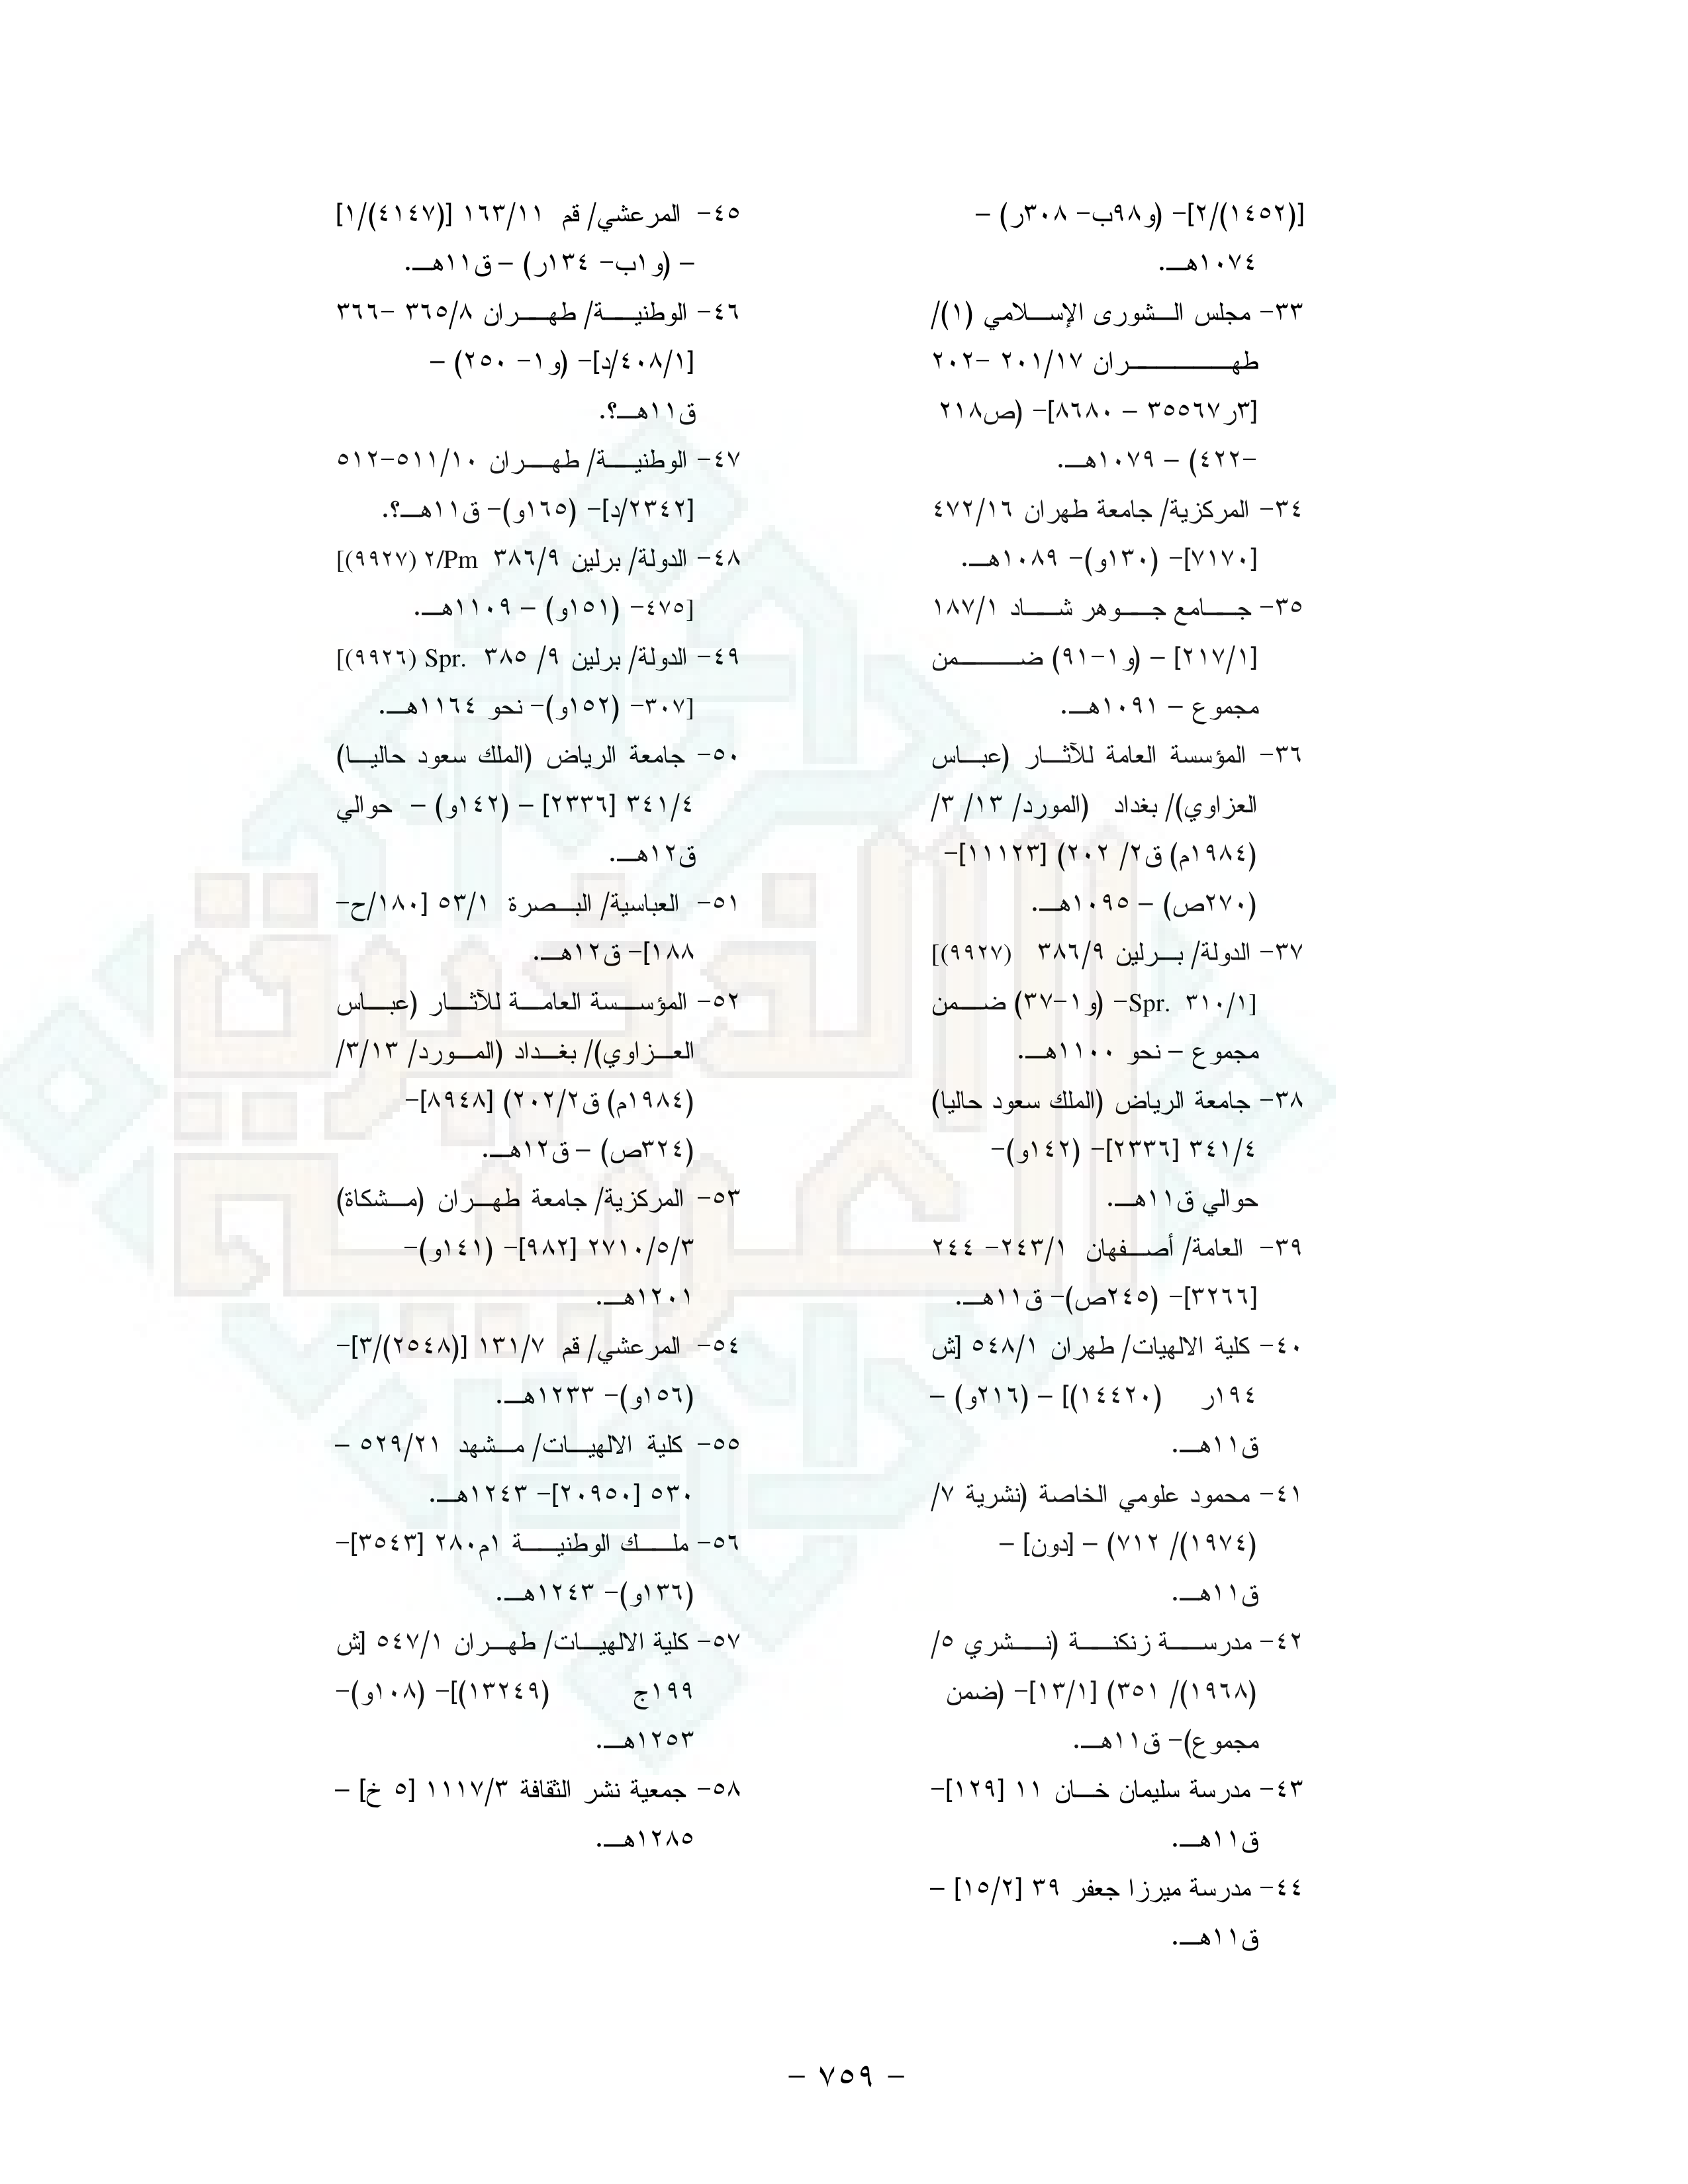 [(١٤٥٢)/٢]- (و٩٨ب- ٣٠٨ر) –
١٠٧٤هـ.
٣٣- مجلس الشورى الإسلامي (١)/
طهران ٢٠١/١٧ -٢٠٢
[٣ر٣٥٥٦٧ – ٨٦٨٠]- (ص٢١٨
-٤٢٢) – ١٠٧٩هـ.
٣٤- المركزية/ جامعة طهران ٤٧٢/١٦
[٧١٧٠]- (١٣٠و)- ١٠٨٩هـ.
٣٥- جامع جوهر شاد ١٨٧/١
[٢١٧/١] – (و١-٩١) ضمن
مجموع – ١٠٩١هـ.
٣٦- المؤسسة العامة للآثار (عباس
العزاوي)/ بغداد (المورد/ ١٣/ ٣/
(١٩٨٤م) ق٢/ ٢٠٢) [١١١٢٣]-
(٢٧٠ص) – ١٠٩٥هـ.
٣٧- الدولة/ برلين ٣٨٦/٩ (٩٩٢٧)]
[Spr. ٣١٠/١- (و١-٣٧) ضمن
مجموع – نحو ١١٠٠هـ.
٣٨- جامعة الرياض (الملك سعود حاليا)
٣٤١/٤ [٢٣٣٦]- (١٤٢و)-
حوالي ق١١هـ.
٣٩- العامة/ أصفهان ٢٤٣/١- ٢٤٤
[٣٢٦٦]- (٢٤٥ص)- ق١١هـ.
٤٠- كلية الالهيات/ طهران ٥٤٨/١ [ش
١٩٤ر (١٤٤٢٠)] – (٢١٦و) –
ق١١هـ.
٤١- محمود علومي الخاصة (نشرية ٧/
(١٩٧٤)/ ٧١٢) – [دون] –
ق١١هـ.
٤٢- مدرسة زنكنة (نشري ٥/
(١٩٦٨)/ ٣٥١) [١٣/١]- (ضمن
مجموع)- ق١١هـ.
٤٣- مدرسة سليمان خان ١١ [١٢٩]-
ق١١هـ.
٤٤- مدرسة ميرزا جعفر ٣٩ [١٥/٢] –
ق١١هـ.
٤٥- المرعشي/ قم ١٦٣/١١ [(٤١٤٧)/١]
– (و١ب- ١٣٤ر) – ق١١هـ.
٤٦- الوطنية/ طهران ٣٦٥/٨ -٣٦٦
[٤٠٨/١/د]- (و١- ٢٥٠) –
ق١١هـ؟.
٤٧- الوطنية/ طهران ٥١١/١٠-٥١٢
[٢٣٤٢/د]- (١٦٥و)- ق١١هـ؟.
٤٨- الدولة/ برلين ٣٨٦/٩ ٢/Pm (٩٩٢٧)]
[٤٧٥- (١٥١و) – ١١٠٩هـ.
٤٩- الدولة/ برلين ٩/ ٣٨٥ Spr. (٩٩٢٦)]
[٣٠٧- (١٥٢و)- نحو ١١٦٤هـ.
٥٠- جامعة الرياض (الملك سعود حاليا)
٣٤١/٤ [٢٣٣٦] – (١٤٢و) – حوالي
ق١٢هـ.
٥١- العباسية/ البصرة ٥٣/١ [١٨٠/ح-
١٨٨]- ق١٢هـ.
٥٢- المؤسسة العامة للآثار (عباس
العزاوي)/ بغداد (المورد/ ٣/١٣/
(١٩٨٤م) ق٢٠٢/٢) [٨٩٤٨]-
(٣٢٤ص) – ق١٢هـ.
٥٣- المركزية/ جامعة طهران (مشكاة)
٢٧١٠/٥/٣ [٩٨٢]- (١٤١و)-
١٢٠١هـ.
٥٤- المرعشي/ قم ١٣١/٧ [(٢٥٤٨)/٣]-
(١٥٦و)- ١٢٣٣هـ.
٥٥- كلية الالهيات/ مشهد ٥٢٩/٢١ –
٥٣٠ [٢٠٩٥٠]- ١٢٤٣هـ.
٥٦- ملك الوطنية ١م٢٨٠ [٣٥٤٣]-
(١٣٦و)- ١٢٤٣هـ.
٥٧- كلية الالهيات/ طهران ٥٤٧/١ [ش
١٩٩ج (١٣٢٤٩)]- (١٠٨و)-
١٢٥٣هـ.
٥٨- جمعية نشر الثقافة ١١١٧/٣ [٥ خ] –
١٢٨٥هـ.
– ٧٥٩ –